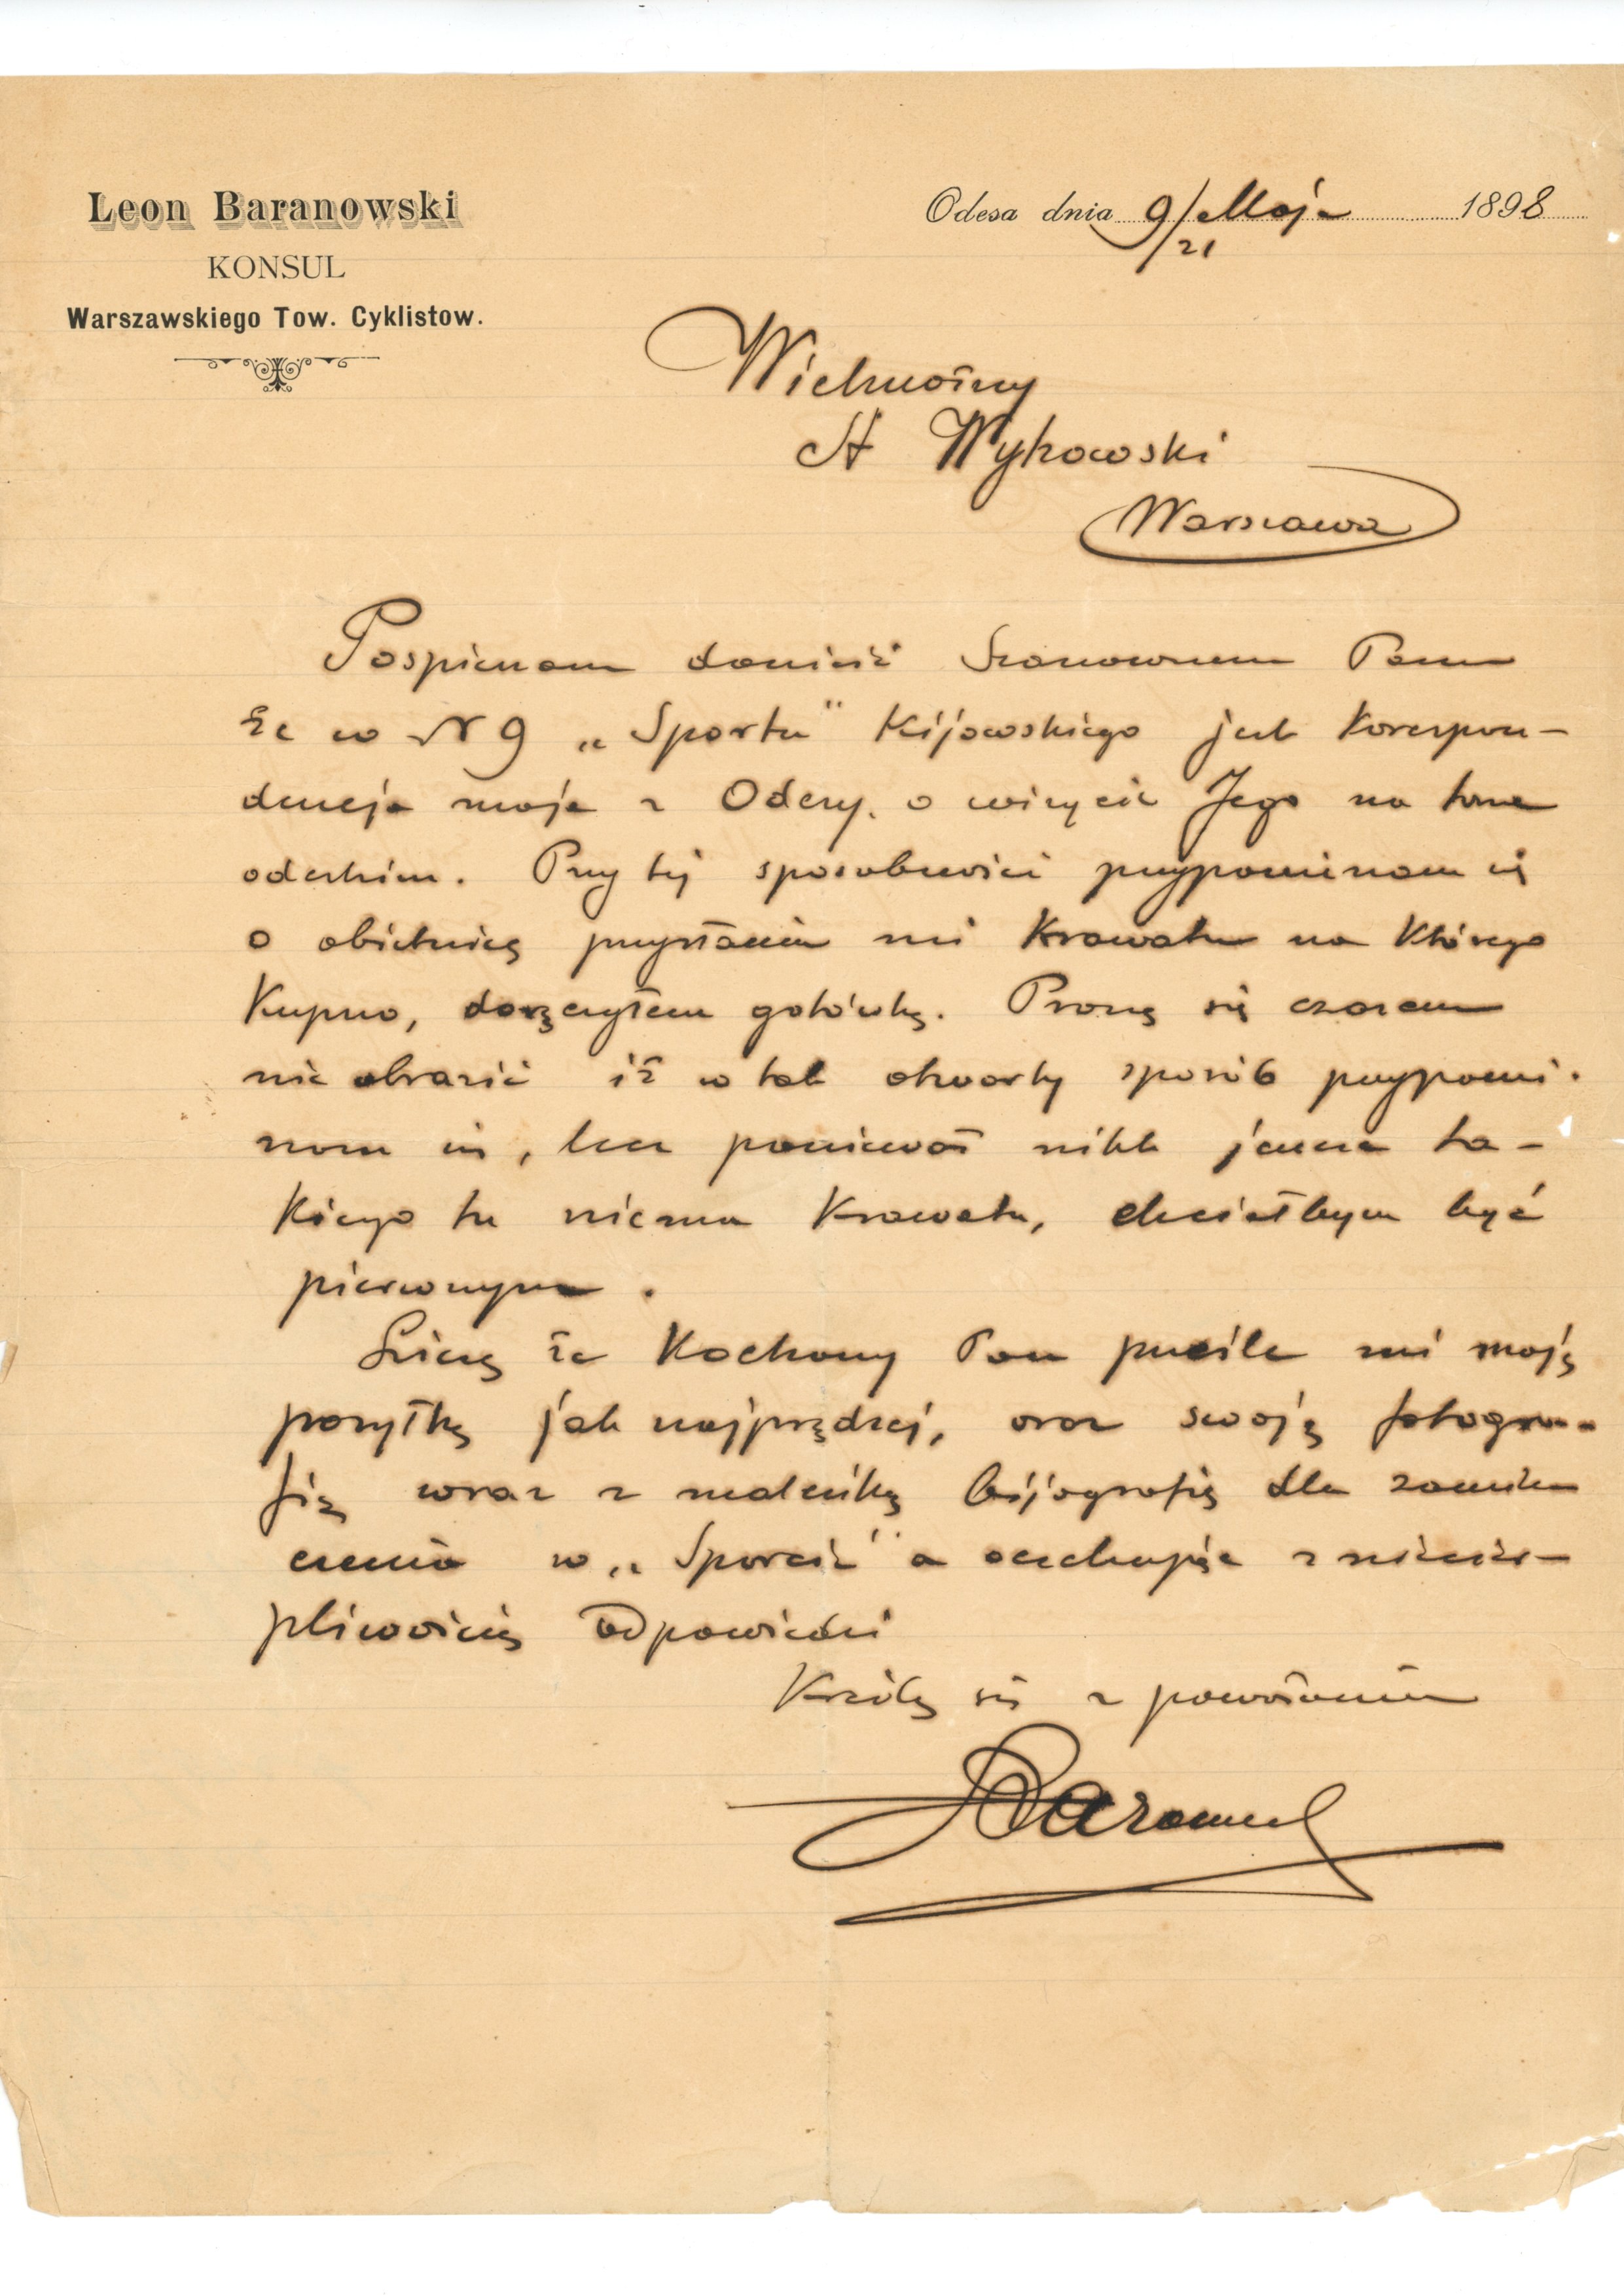 Leon Baranowski
KONSUL
Warszawskiego Tow. Cyklistow.
Odesa dnia 9/21 Maja 1898
Wielmożny
St Wykowski
Warszawa
Pospieszam donieść Szanownem Panu
że w N 9 „Sportu" Kijowskiego jest korespon-
dencja moja z Odesy. o wizycie Jego na torze
odeskim. Przy tej sposobności przypominam się
o obietnicę przysłania mi Krawatu na Którego
Kupno, doręczyłem gotówkę. Proszę się czasem
nie obrazić iż w tak otwarty sposób przypomi-
nam się, lecz ponieważ nikt jeszcze ta-
kiego tu niema Krawatu, chciałbym być
pierwszym.
Liczę że Kochany Pan prześle mi moją
posyłkę jak najprędzej, oraz swoją fotogra-
fię wraz z maleńką bijografię dla zamiesz
czenia w „Sporcie" a oczekując z niecier-
pliwością odpowiedzi
Kreślę się z poważaniem
LBaranowski